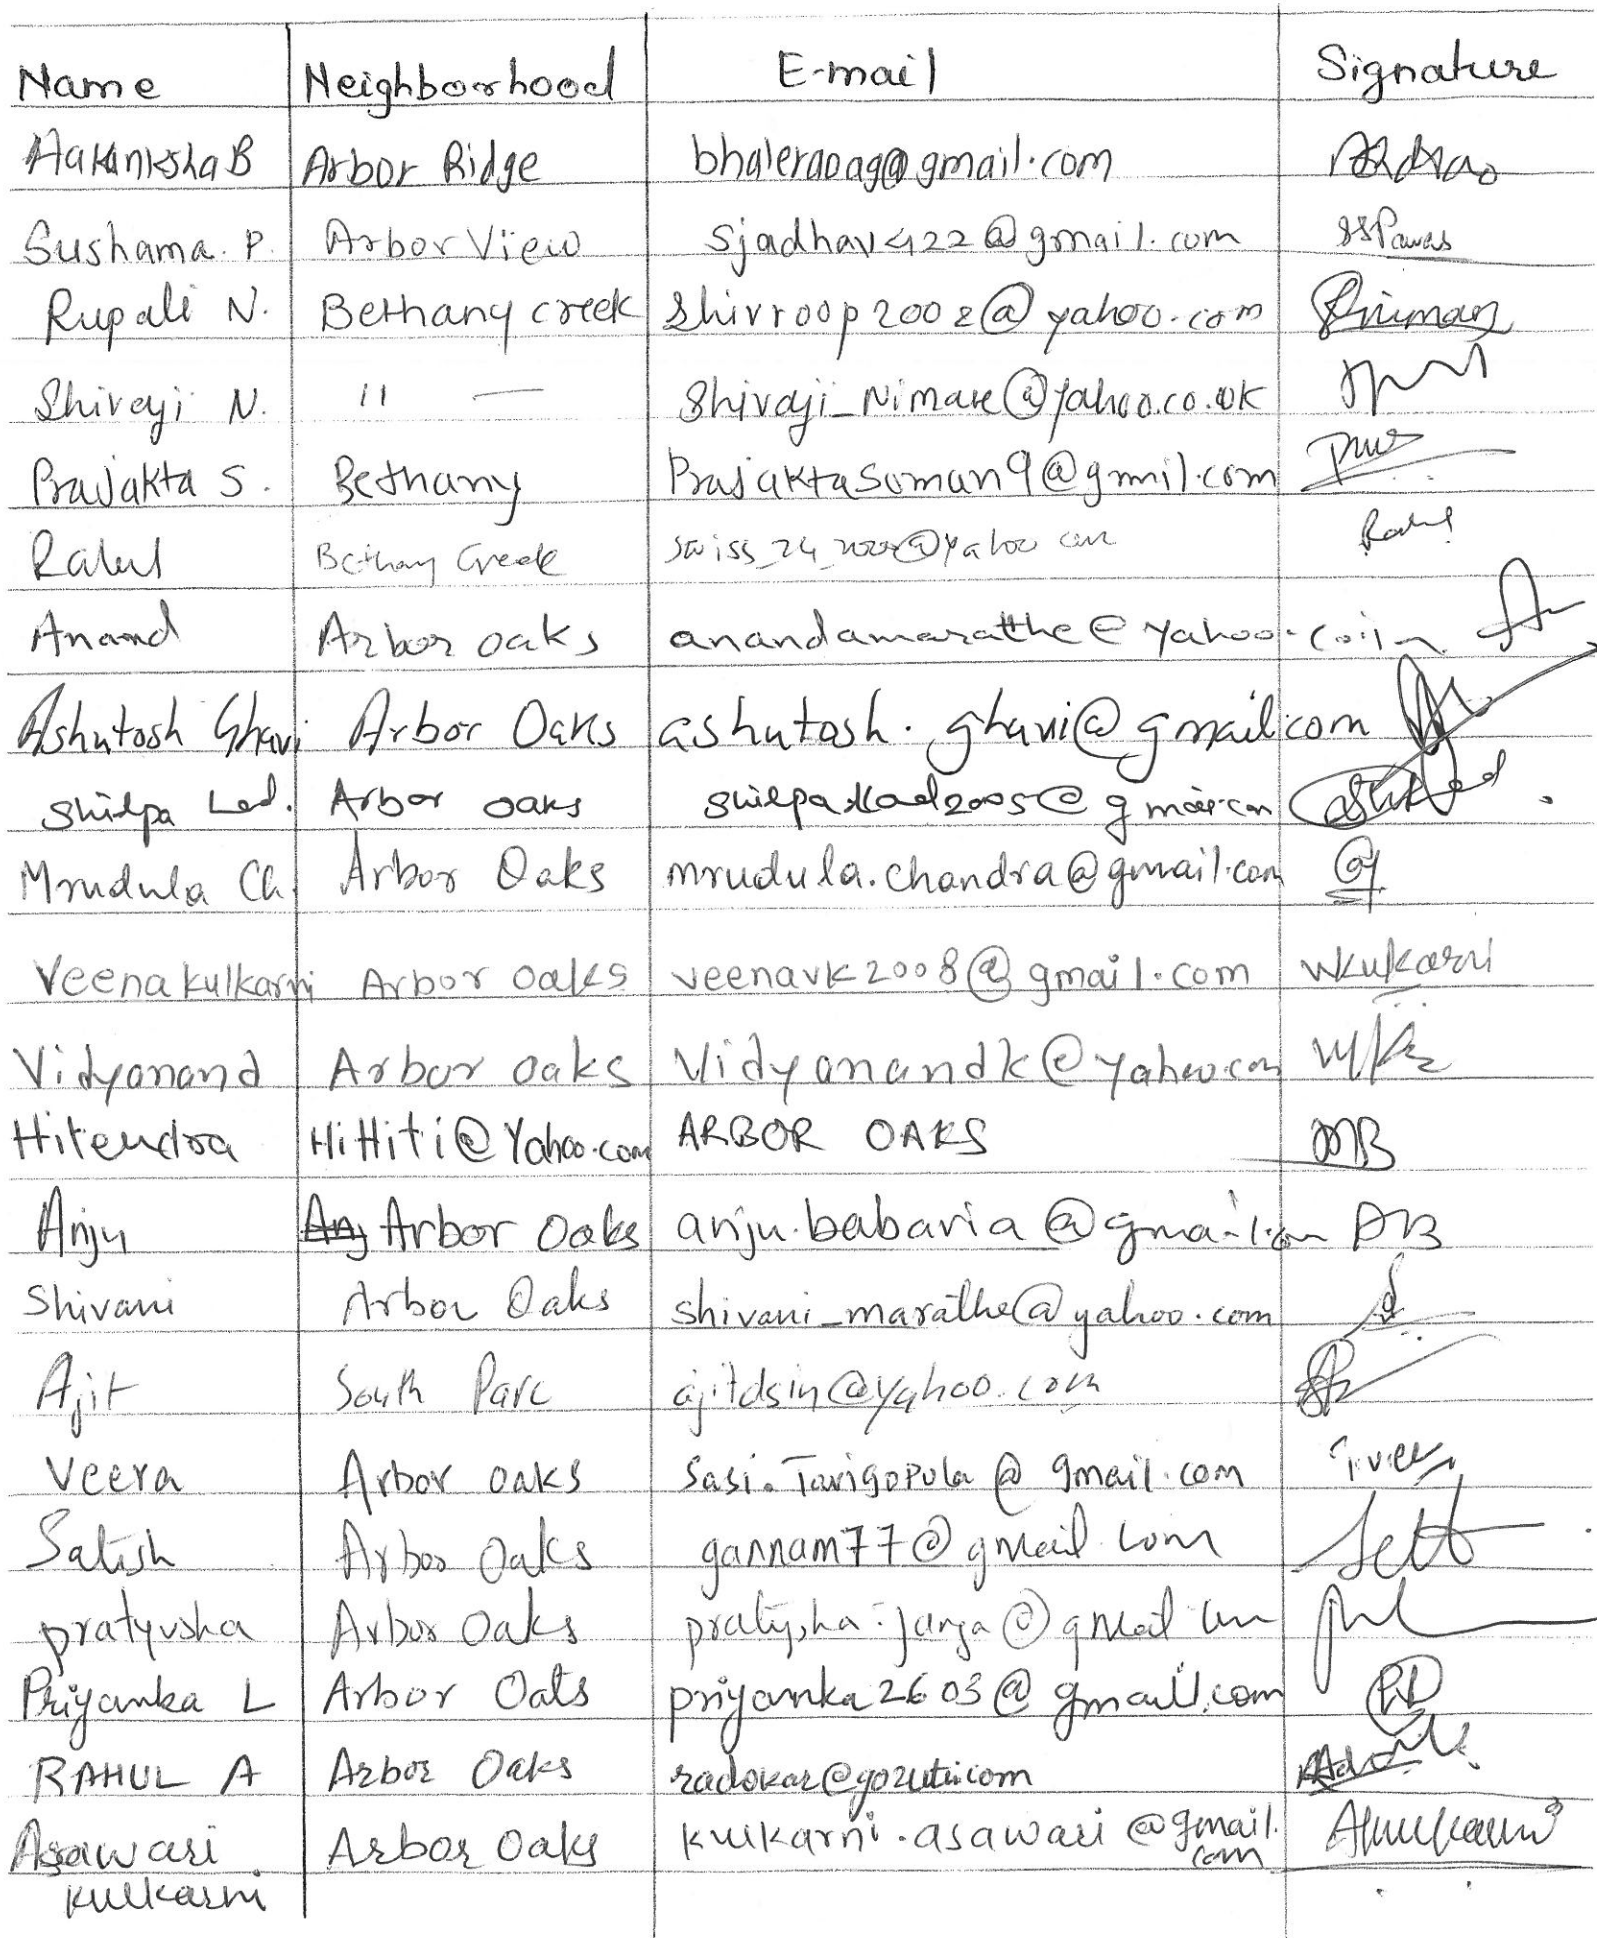 Name Neighborhood E-mail Signature
Aakanksha B Arbor Ridge bhaleraoag@gmail.com
Sushama. P. Arbor View sjadhav422@gmail.com SSPawar
Rupali N. Bethany creek shivroop2002@yahoo.com
Shivaji N. " — Shivaji_Nimare@yahoo.co.uk
Prajakta S. Bethany PrajaktaSoman9@gmail.com
Rahul Bethany Creek Rahul
Anand Arbor oaks anandamarathe@yahoo.co.in
Ashutosh Ghavi Arbor Oaks ashutosh.ghavi@gmail.com
Shilpa Lad. Arbor oaks
Mrudula Ch. Arbor Oaks mrudula.chandra@gmail.com
Veena kulkarni Arbor oaks veenavk2008@gmail.com VVKulkarni
Vidyanand Arbor oaks Vidyanandk@yahoo.com
Hitendra HiHiti@Yahoo.com ARBOR OAKS
Anju Arbor Oaks anju.babaria@gmail.com AB
Shivani Arbor Oaks shivani_marathe@yahoo.com
Ajit South Parc ajitdsin@yahoo.com
Veera Arbor oaks Sasi.Tavigopula@gmail.com
Satish Arbor Oaks gannam77@gmail.com
pratyusha Arbor Oaks
Priyanka L Arbor Oaks priyanka2603@gmail.com
RAHUL A Arbor Oaks
Asawari Arbor Oaks kulkarni.asawari@gmail. AKulkarni
com
Kulkarni